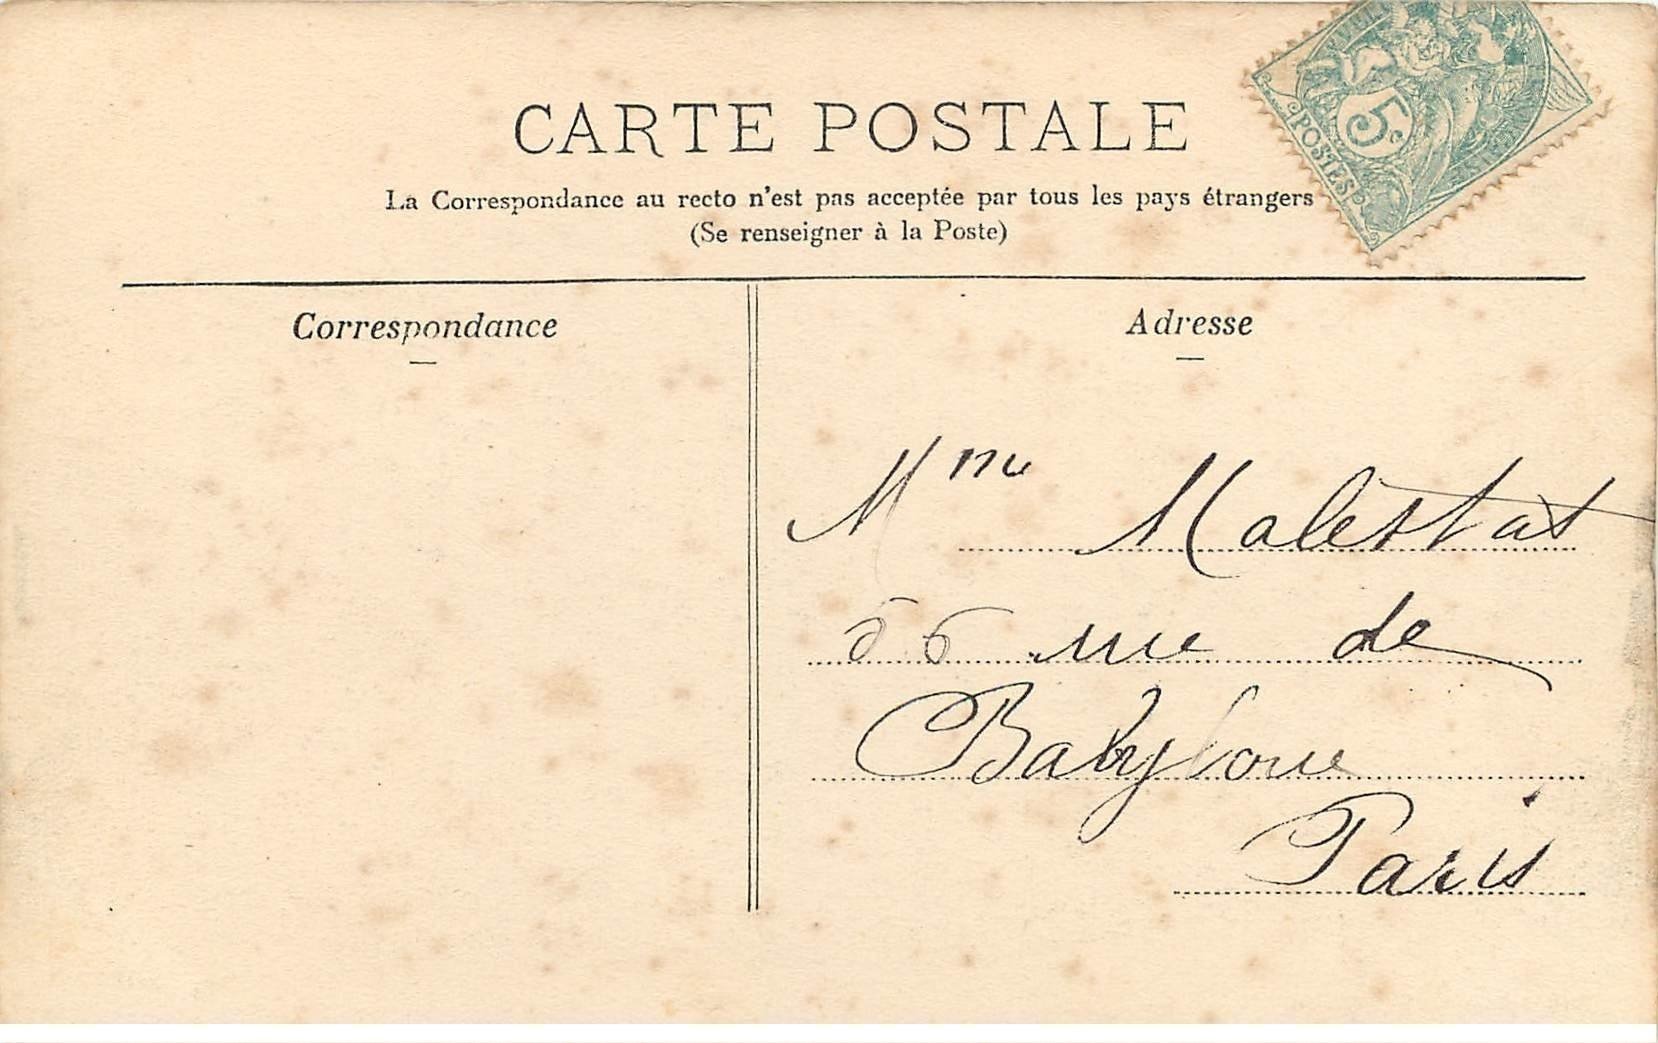 CARTE POSTALE
La Correspondance au recto n'est pas acceptée par tous les pays étrangers
(Se renseigner à la Poste)
5c
POSTES
Correspondance
Adresse
Mme Malestat
56 rue de
Babylone
Paris